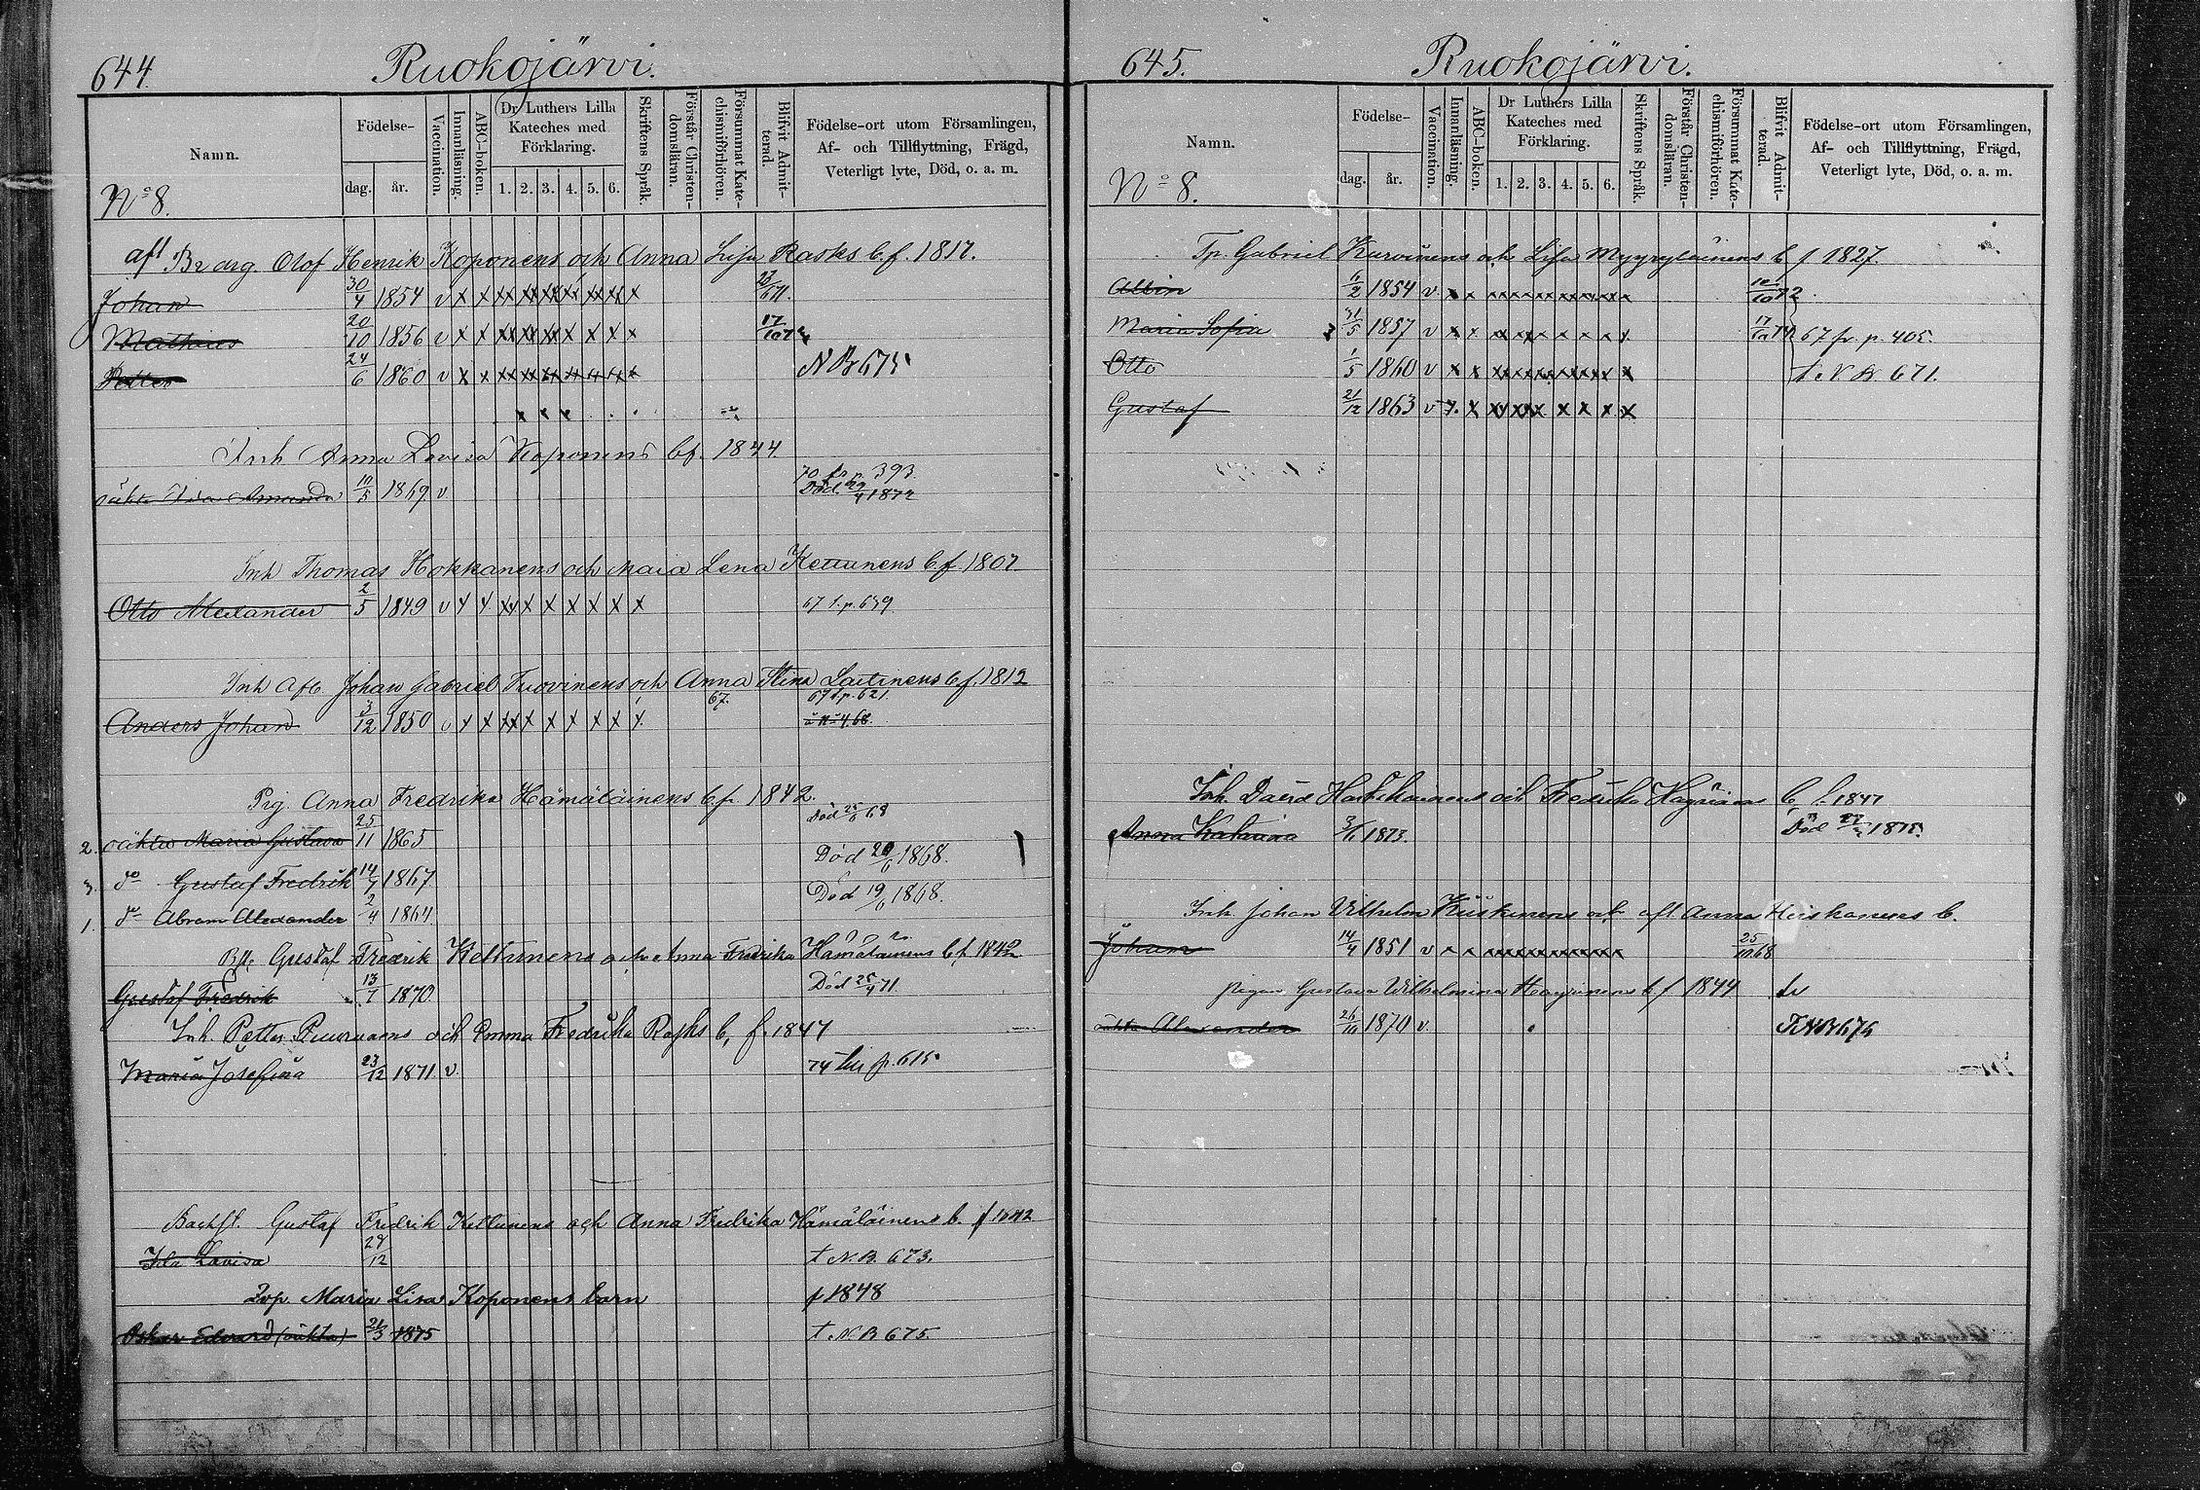 644. Ruokojärvi.
Namn.
Födelse-
dag. år.
Vaccination.
Innanläsning.
ABC-boken.
Dr Luthers Lilla Kateches med Förklaring.
1. 2. 3. 4. 5. 6.
Skriftens Språk.
Förstår Christendomsläran.
Försummat Katechismiförhören.
Blifvit Admitterad.
Födelse-ort utom Församlingen,
Af- och Tillflyttning, Frägd,
Veterligt lyte, Död, o. a. m.
No 8.
Olof Henrik Koponens och Anna Lisa Rasks b. f. 1817.
Johan 30/4 1854 v x x
Mathias 20/10 1856 v x x
Petter 24/6 1860 v x x N B 675
Inh Anna Lovisa Koponens bf. 1844
70 fr p 393.
Amanda 10/5 1869 v. Död 1872
Inh Thomas Hokkanens och Maria Lena Kettunens bf 1807
Otto Alexander 2/5 1849 v 67 t. p. 639
Inh Afl. Johan Gabriel Tuovinens och Anna Stina Laitinens b f. 1812
67. 67 t. p. 621.
Anders Johan 3/12 1850 v
Pig. Anna Fredrika Hämäläinens b.f. 1842.
2. oäkta Maria Gustava 25/11 1865 Död 68
3. do Gustaf Fredrik 14/7 1867 Död 20/6 1868.
1. do Abram Alexander 2/4 1864 Död 19/6 1868.
Gustaf Fredrik Kettunens och Anna Fredrika Hämäläinens b f. 1842
Gustaf Fredrik 13/7 1870 Död 25/4 71
Inh. Petter och Emma Fredrika Rasks b, f. 1847
Maria Josefina 23/12 1871 v. 74 till p. 615
Backst. Gustaf Fredrik Kettunens och Anna Fredrika Hämäläinens b. f 1842
Ida Lovisa 29/12 t N. B. 673.
Maria Lisa Koponens barn f 1848
Oskar Edvard (oäkta) 21/3 1875 t N. B 675.
645. Ruokojärvi.
Namn.
Födelse-
dag. år.
Vaccination.
Innanläsning.
ABC-boken.
Dr Luthers Lilla Kateches med Förklaring.
1. 2. 3. 4. 5. 6.
Skriftens Språk.
Förstår Christendomsläran.
Försummat Katechismiförhören.
Blifvit Admitterad.
Födelse-ort utom Församlingen,
Af- och Tillflyttning, Frägd,
Veterligt lyte, Död, o. a. m.
No 8.
Tp. Gabriel Karvinens och Lisa Myyryläinens b f 1827.
Albin 6/2 1854 v
Maria Sofia 31/5 1857 v 67 fr. p. 405.
Otto 1/5 1860 v x x t N. B. 671.
Gustaf 21/12 1863 v
Inh. David och Fredrika b f. 1847
Anna Katarina 1873. Död 1875
Inh Johan Vilhelm och afl Anna Heiskanens b.
Johan 14/4 1851 v x x 25/10 68
Pigan Gustava Wilhelmina b f 1844
oäkta Alexander 26/10 1870 v T N B 676